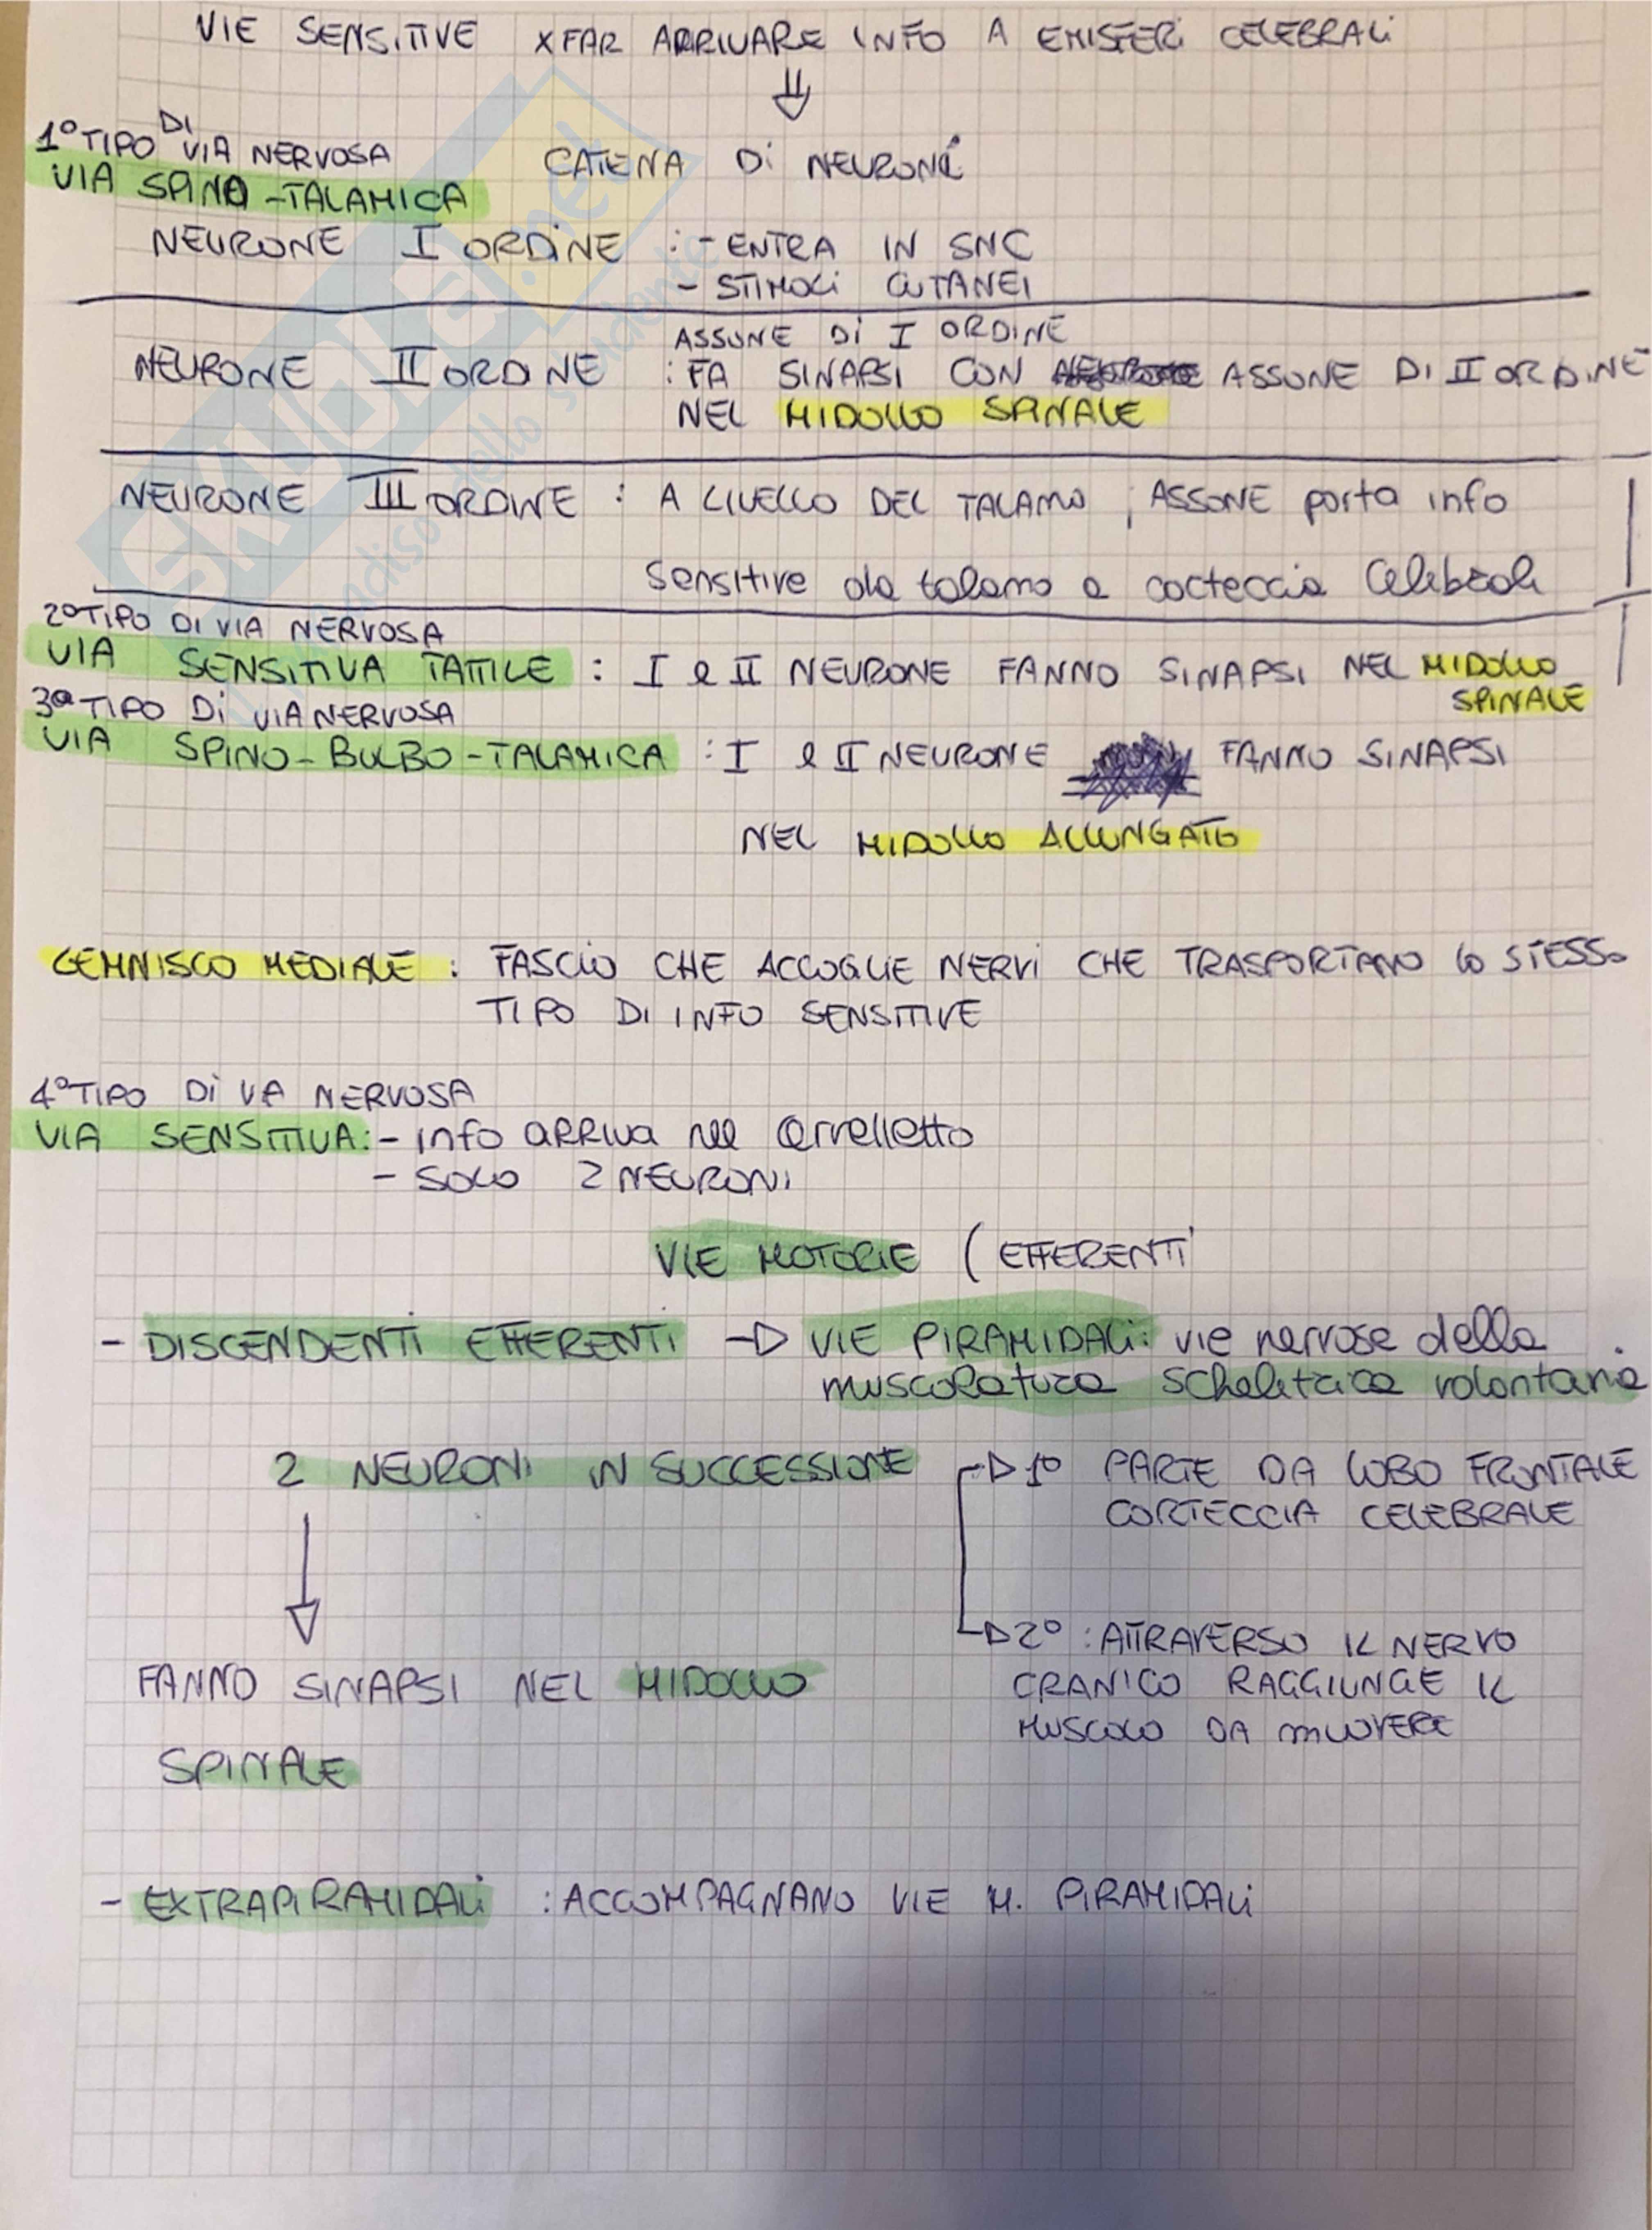 VIE SENSITIVE X FAR ARRIVARE INFO A EMISFERI CELEBRALI
⇓
1° TIPO DI VIA NERVOSA
VIA SPINO-TALAMICA
CATENA DI NEURONI
NEURONE I ORDINE : - ENTRA IN SNC
- STIMOLI CUTANEI
ASSONE DI I ORDINE
NEURONE II ORDINE : FA SINAPSI CON ASSONE DI II ORDINE
NEL MIDOLLO SPINALE
NEURONE III ORDINE : A LIVELLO DEL TALAMO ; ASSONE porta info
sensitive da talamo a corteccia celebrale
2° TIPO DI VIA NERVOSA
VIA SENSITIVA TATTILE : I e II NEURONE FANNO SINAPSI NEL MIDOLLO
SPINALE
3° TIPO DI VIA NERVOSA
VIA SPINO-BULBO-TALAMICA : I e II NEURONE FANNO SINAPSI
NEL MIDOLLO ALLUNGATO
LEMNISCO MEDIALE : FASCIO CHE ACCOGLIE NERVI CHE TRASPORTANO LO STESSO
TIPO DI INFO SENSITIVE
4° TIPO DI VA NERVOSA
VIA SENSITIVA: - info arriva nel cervelletto
- SOLO 2 NEURONI
VIE MOTORIE (EFFERENTI
- DISCENDENTI EFFERENTI → VIE PIRAMIDALI: vie nervose della
muscolatura scheletrica volontaria
2 NEURONI IN SUCCESSIONE → 1° PARTE DA LOBO FRONTALE
CORTECCIA CELEBRALE
→ 2° : ATTRAVERSO IL NERVO
CRANICO RAGGIUNGE IL
MUSCOLO DA MUOVERE
FANNO SINAPSI NEL MIDOLLO
SPINALE
- EXTRAPIRAMIDALI : ACCOMPAGNANO VIE M. PIRAMIDALI
SKUOLA.net
il paradiso dello studente